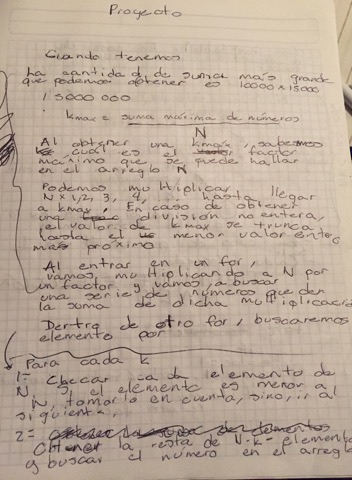 Proyecto
Cuando tenemos
La cantidad de suma más grande
que podemos obtener es 10000 x 15000
15000 000
kmax = suma máxima de números
N
Al obtener una kmax, sabemos
cual es el factor
máximo que se puede hallar
en el arreglo N
Podemos multiplicar
N x 1, 2, 3, 4, ... hasta llegar
a kmax. En caso de obtener
una división no entera,
el valor de kmax se trunca
hasta el menor valor entero
más proximo
Al entrar en un for,
vamos multiplicando a N por
un factor y vamos a buscar
una serie de números que den
la suma de dicha multiplicació
Dentro de otro for, buscaremos
elemento por
Para cada k
1= Checar elemento de
N, si el elemento es menor a
N, tomarlo en cuenta, sino, ir al
siguiente.
2=
Obtener la resta de N·k - element
y buscar el número en el arregl